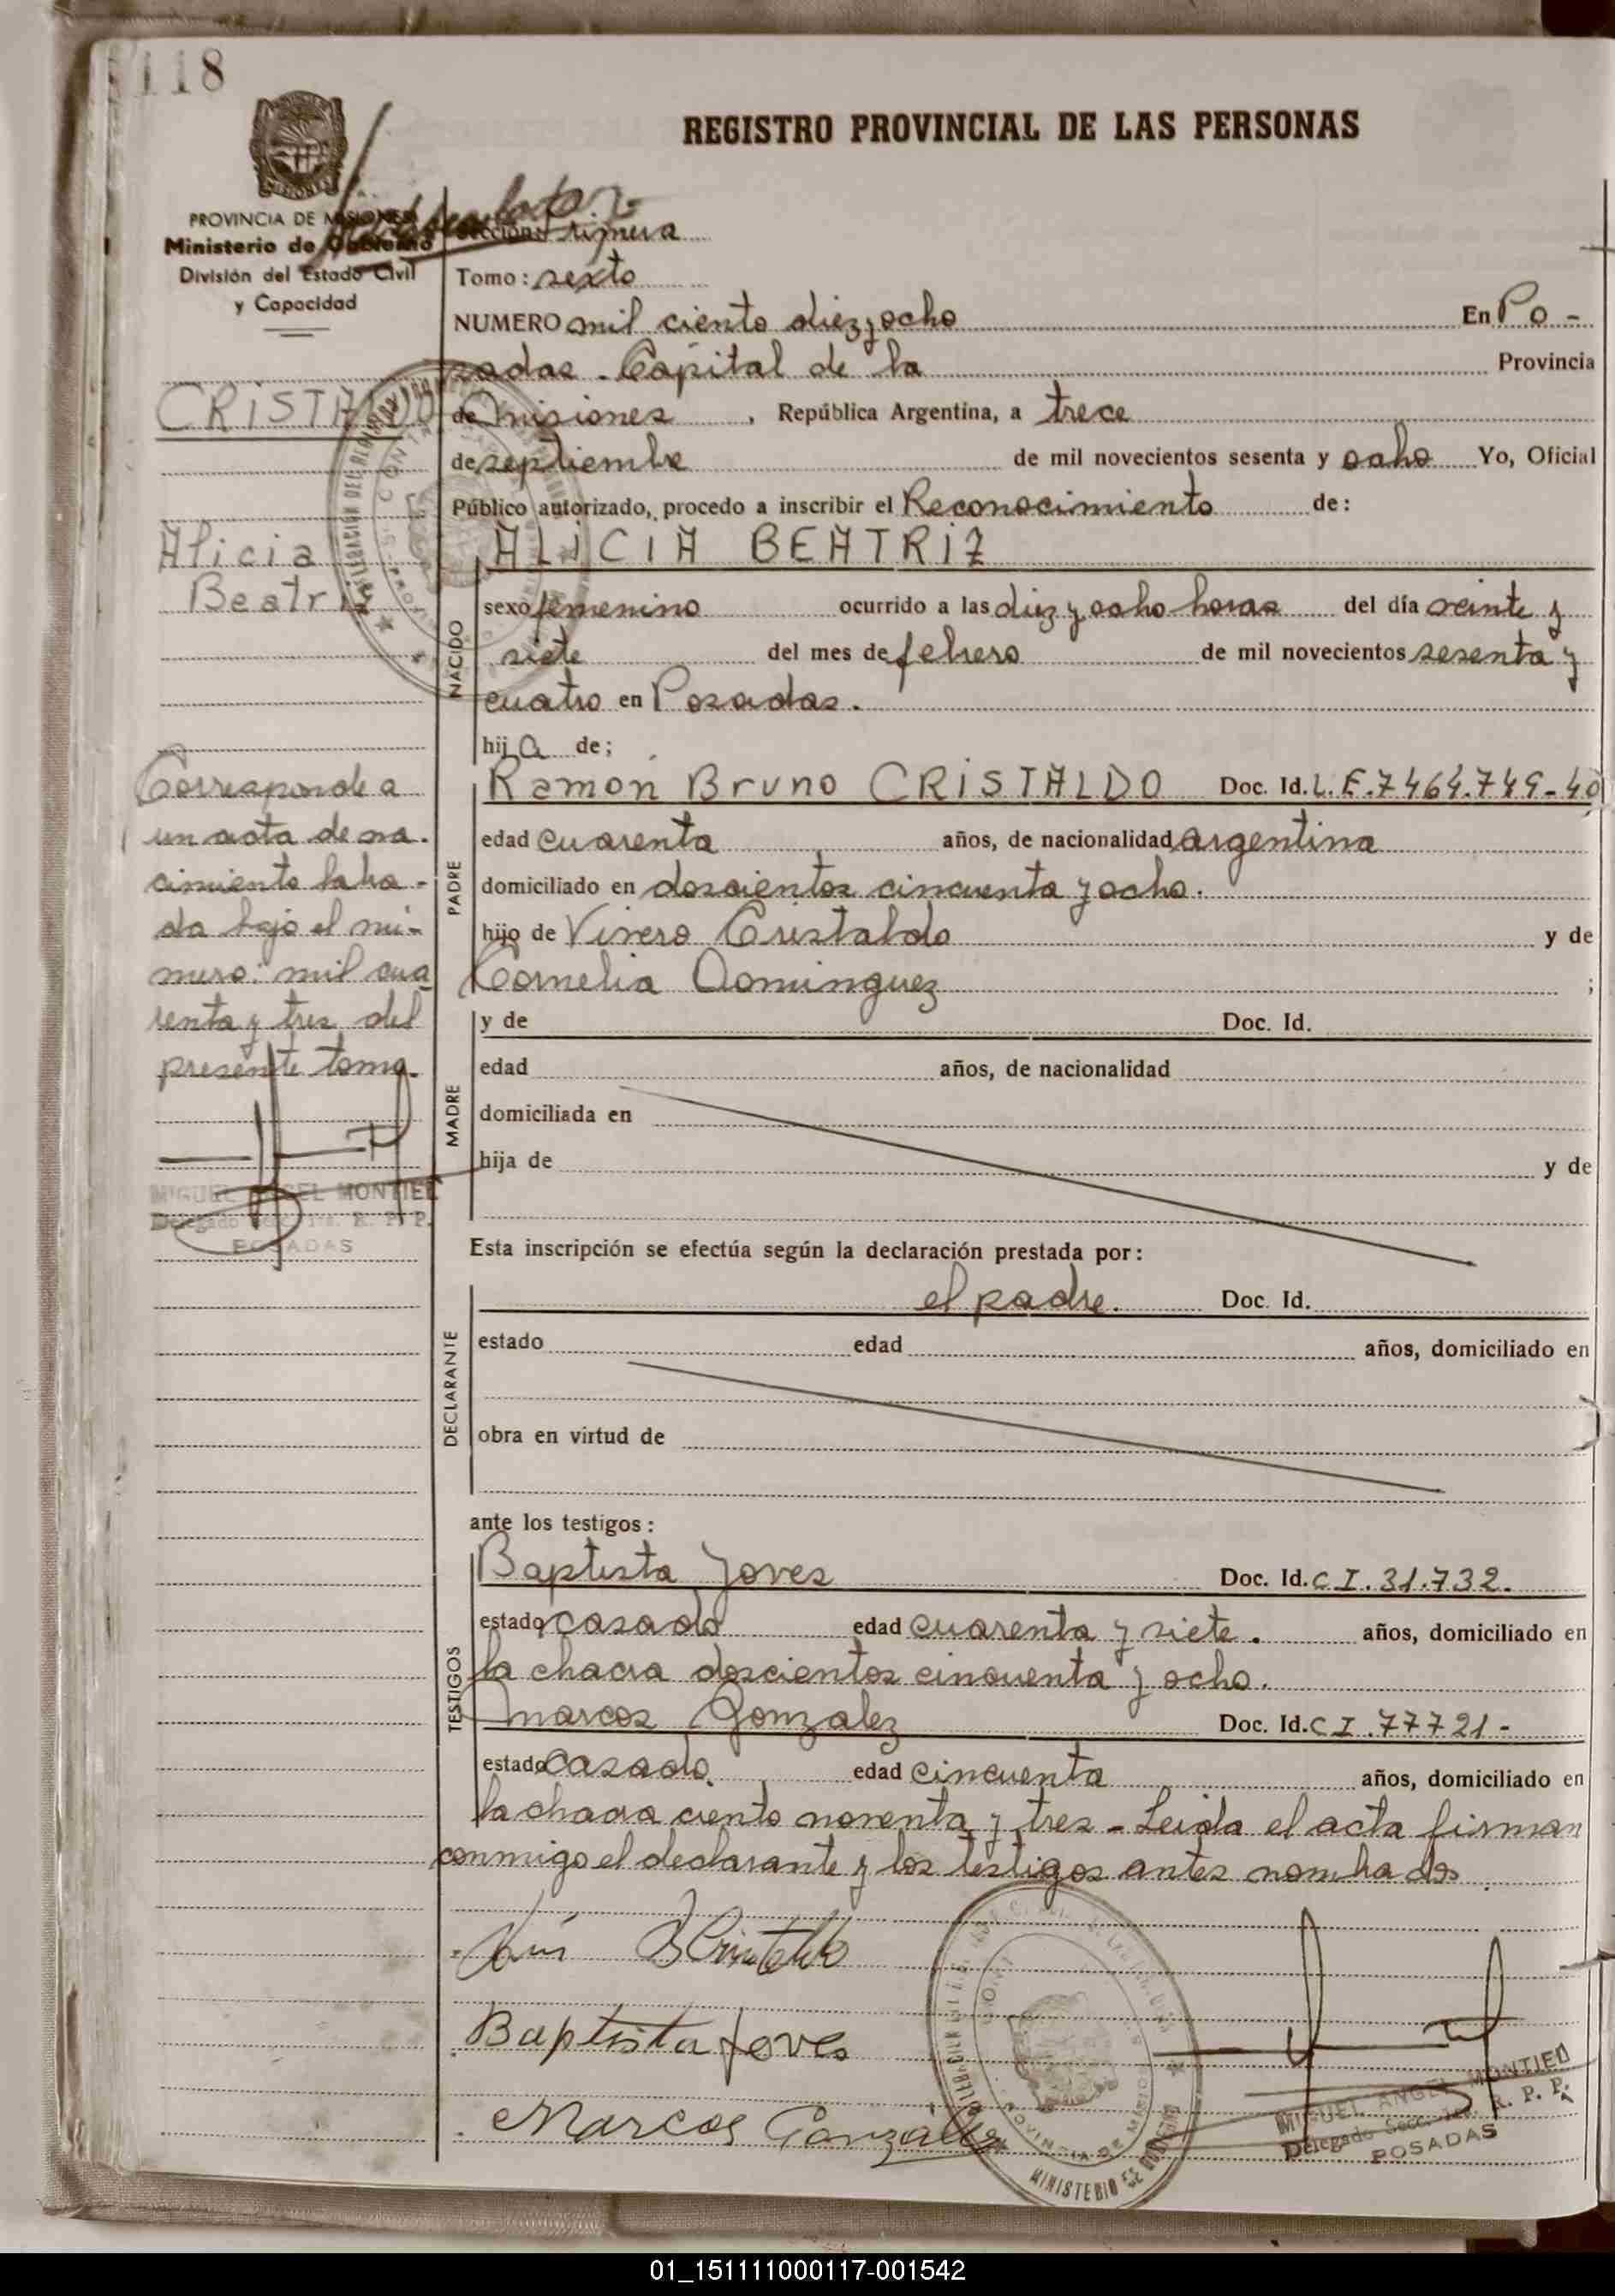 1118
REGISTRO PROVINCIAL DE LAS PERSONAS
PROVINCIA DE MISIONES
Ministerio de Gobierno
División del Estado Civil
y Capacidad
Sección: Primera
Tomo: sexto
NUMERO mil ciento diez y ocho En Po-
sadas. Capital de la Provincia
de Misiones, República Argentina, a trece
de septiembre de mil novecientos sesenta y ocho Yo, Oficial
Público autorizado, procedo a inscribir el Reconocimiento de:
ALICIA BEATRIZ
CRISTALDO
Alicia
Beatriz
NACIDO
sexo femenino ocurrido a las diez y ocho horas del día veinte y
siete del mes de febrero de mil novecientos sesenta y
cuatro en Posadas.
hija de;
PADRE
Ramón Bruno CRISTALDO Doc. Id. L.E. 7464.749-40
edad cuarenta años, de nacionalidad argentina
domiciliado en doscientos cincuenta y ocho.
hijo de Vivero Cristaldo y de
Cornelia Dominguez ;
Corresponde a
un acta de na-
cimiento labra-
da bajo el nú-
mero: mil cua
renta y tres del
presente tomo.
MIGUEL ANGEL MONTIEL
Delegado Secc. 1ra. R. P. P.
POSADAS
MADRE
y de Doc. Id.
edad años, de nacionalidad
domiciliada en
hija de y de
Esta inscripción se efectúa según la declaración prestada por:
DECLARANTE
el padre. Doc. Id.
estado edad años, domiciliado en
obra en virtud de
ante los testigos:
TESTIGOS
Baptista Joves Doc. Id. C I. 31.732.
estado casado edad cuarenta y siete. años, domiciliado en
la chacra doscientos cincuenta y ocho.
Marcos Gonzalez Doc. Id. C I. 77721-
estado casado. edad cincuenta años, domiciliado en
la chacra ciento noventa y tres - Leida el acta firman
conmigo el declarante y los testigos antes nombrados.
Baptista Joves
Marcos Gonzálz
PROVINCIA DE MISIONES
MINISTERIO DE GOBIERNO
MIGUEL ANGEL MONTIEL
Delegado Secc. 1ra. R. P. P.
POSADAS
01_151111000117-001542